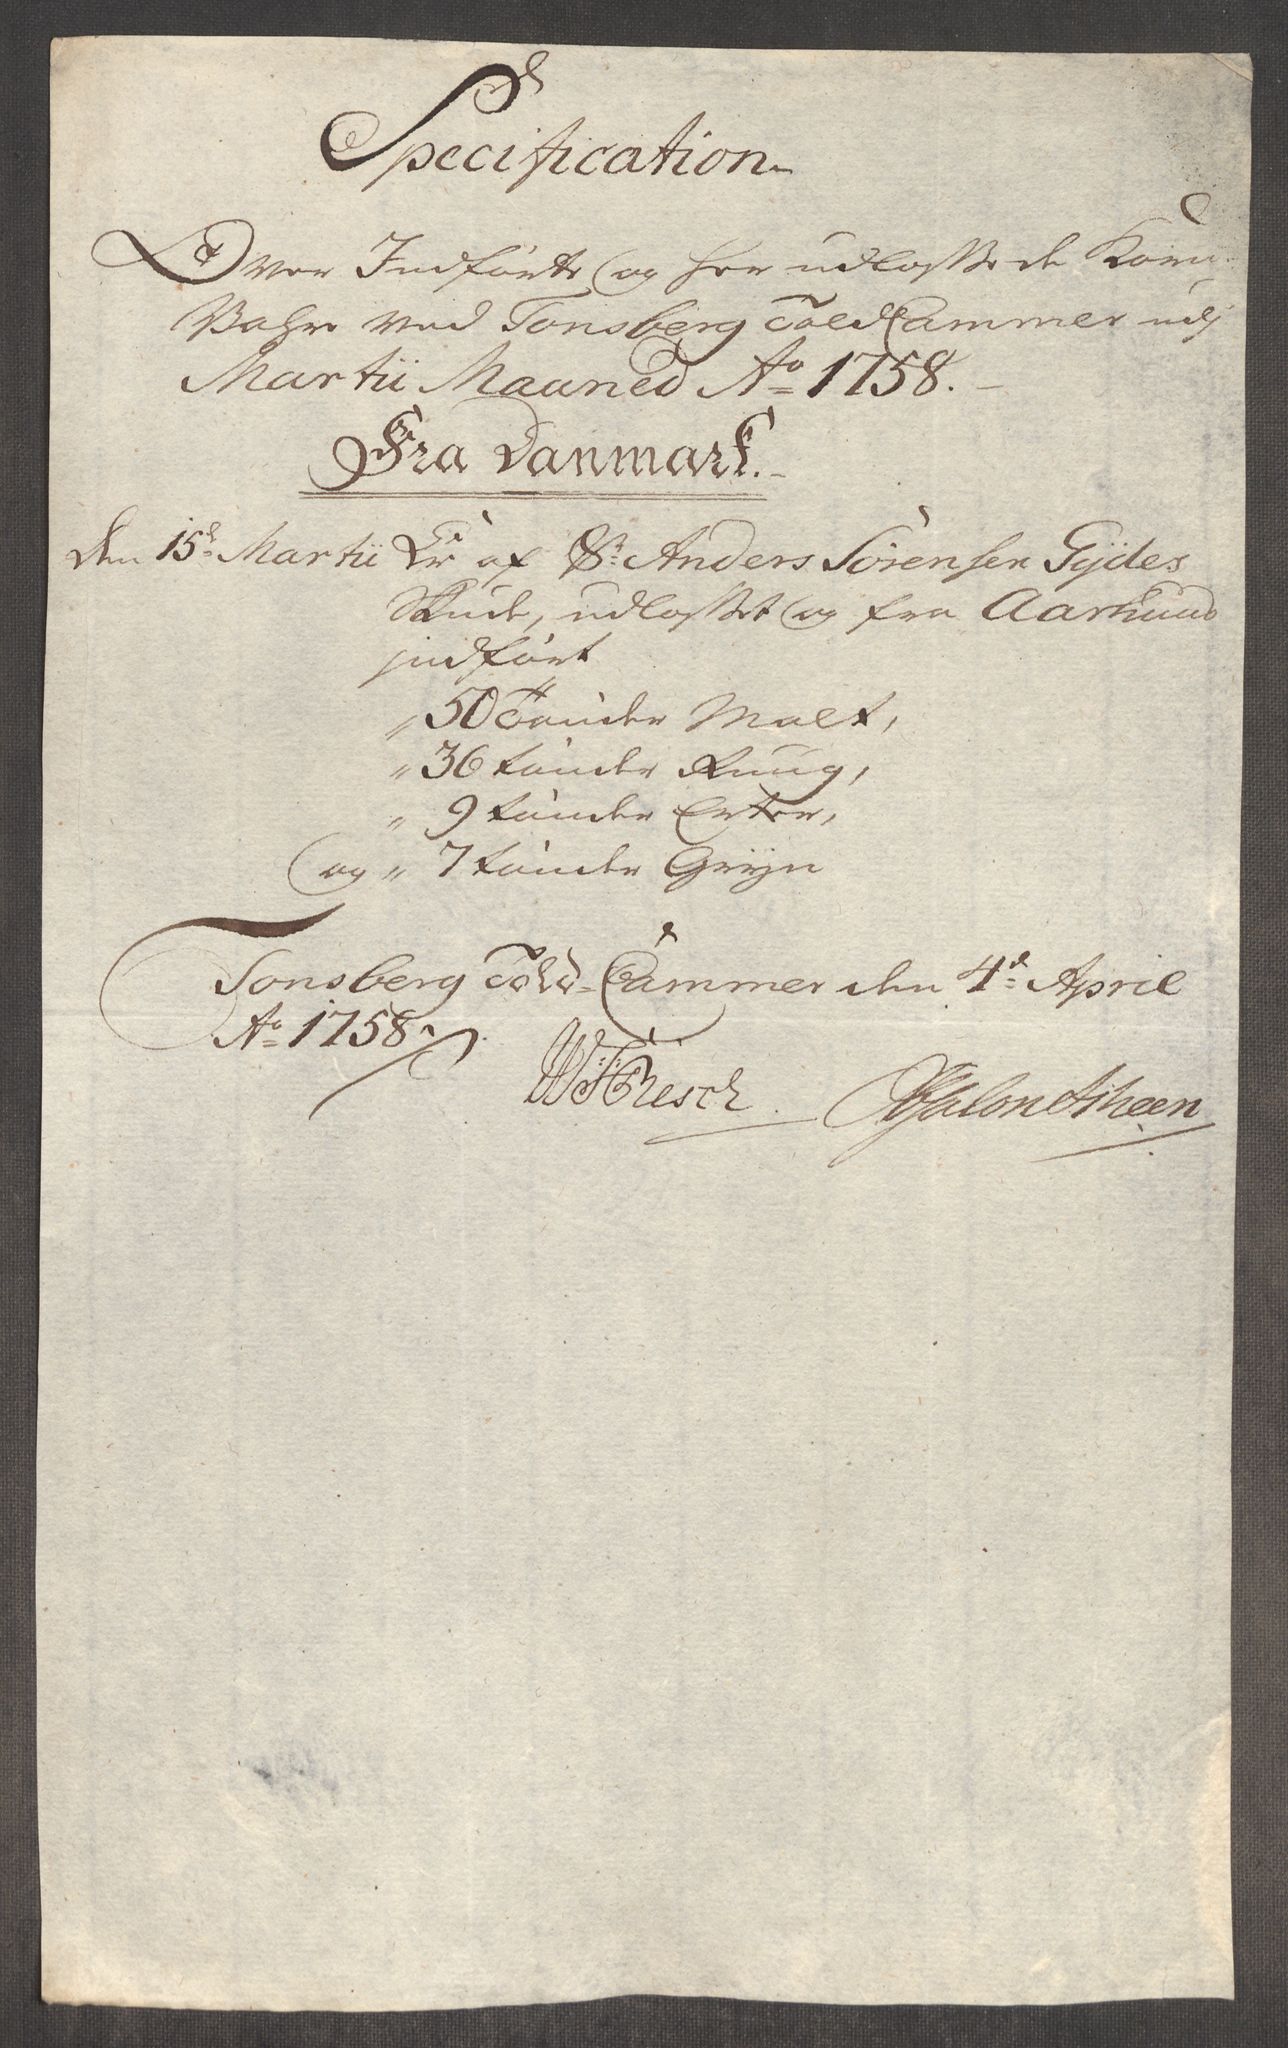 Specification
Over Indførte og her udlossede Korn-
Vahre ved Tonsberg Told Cammer udj
Martii Maaned Ao 1758.
Fra Danmark.
den 15d Martii Er af Sr. Anders Sörensen Gÿdes
Skude, udlosset og fra Aarhuus
jndført
" 50 Tønder Malt,
" 36 tønder Ruug,
" 9 tønder Erter,
og " 7 tønder Grÿn
Tonsberg Told-Cammer den 4d April
Ao 1758.
Resch